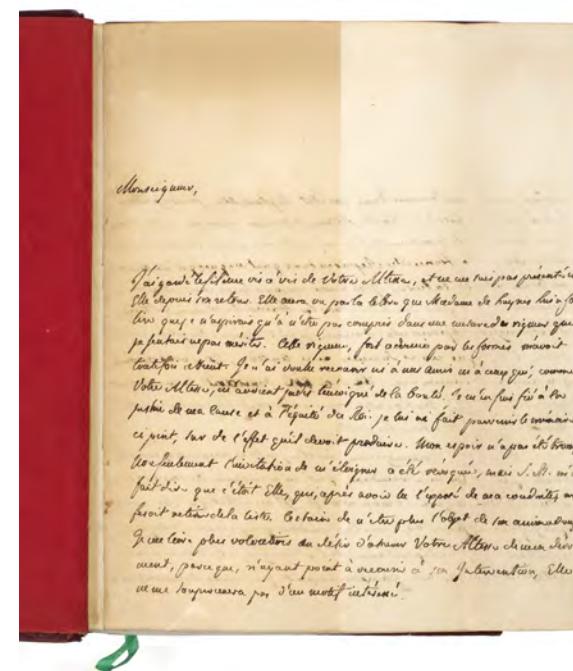 Monseigneur,
J'ai gardé le silence vis à vis de Votre Altesse, et ne me suis pas présenté c
Elle depuis son retour. Elle aura vu par la lettre que Madame de
lire que je n'aspirais qu'à n'être pas compris dans une mesure de rigueur que
je sentais ne pas mériter. Cette rigueur, fort adoucie par les formes m'avoit
toutefois atteint. Je n'ai voulu recourir ni à mes amis ni à ceux qui, comme
Votre Altesse, m'avoient jadis témoigné de la bonté. Je m'en suis fié à la
justice de ma cause et à l'équité du Roi. je lui ai fait parvenir le mémoire
ci joint, sur de l'effet qu'il devoit produire. Mon espoir n'a pas été trom
Non seulement l'invitation de m'éloigner a été révoquée, mais S.M. m'a
fait dire que c'étoit Elle, qui, après avoir lu l'exposé de ma conduite, me
faisoit retirer de la liste. Certain de n'être plus l'objet de son animadver
je me livre plus volontiers au désir d'assurer Votre Altesse de mon dévo
ment, parce que, n'ayant point à recourir à son Intervention, Elle
ne me soupçonnera pas d'un motif intéressé.